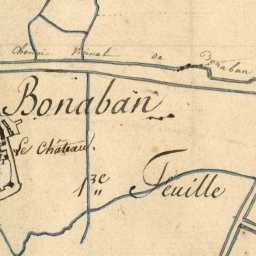 Chemin Vicinal de Bonaban
Bonaban
Le Château.
1.re Feuille